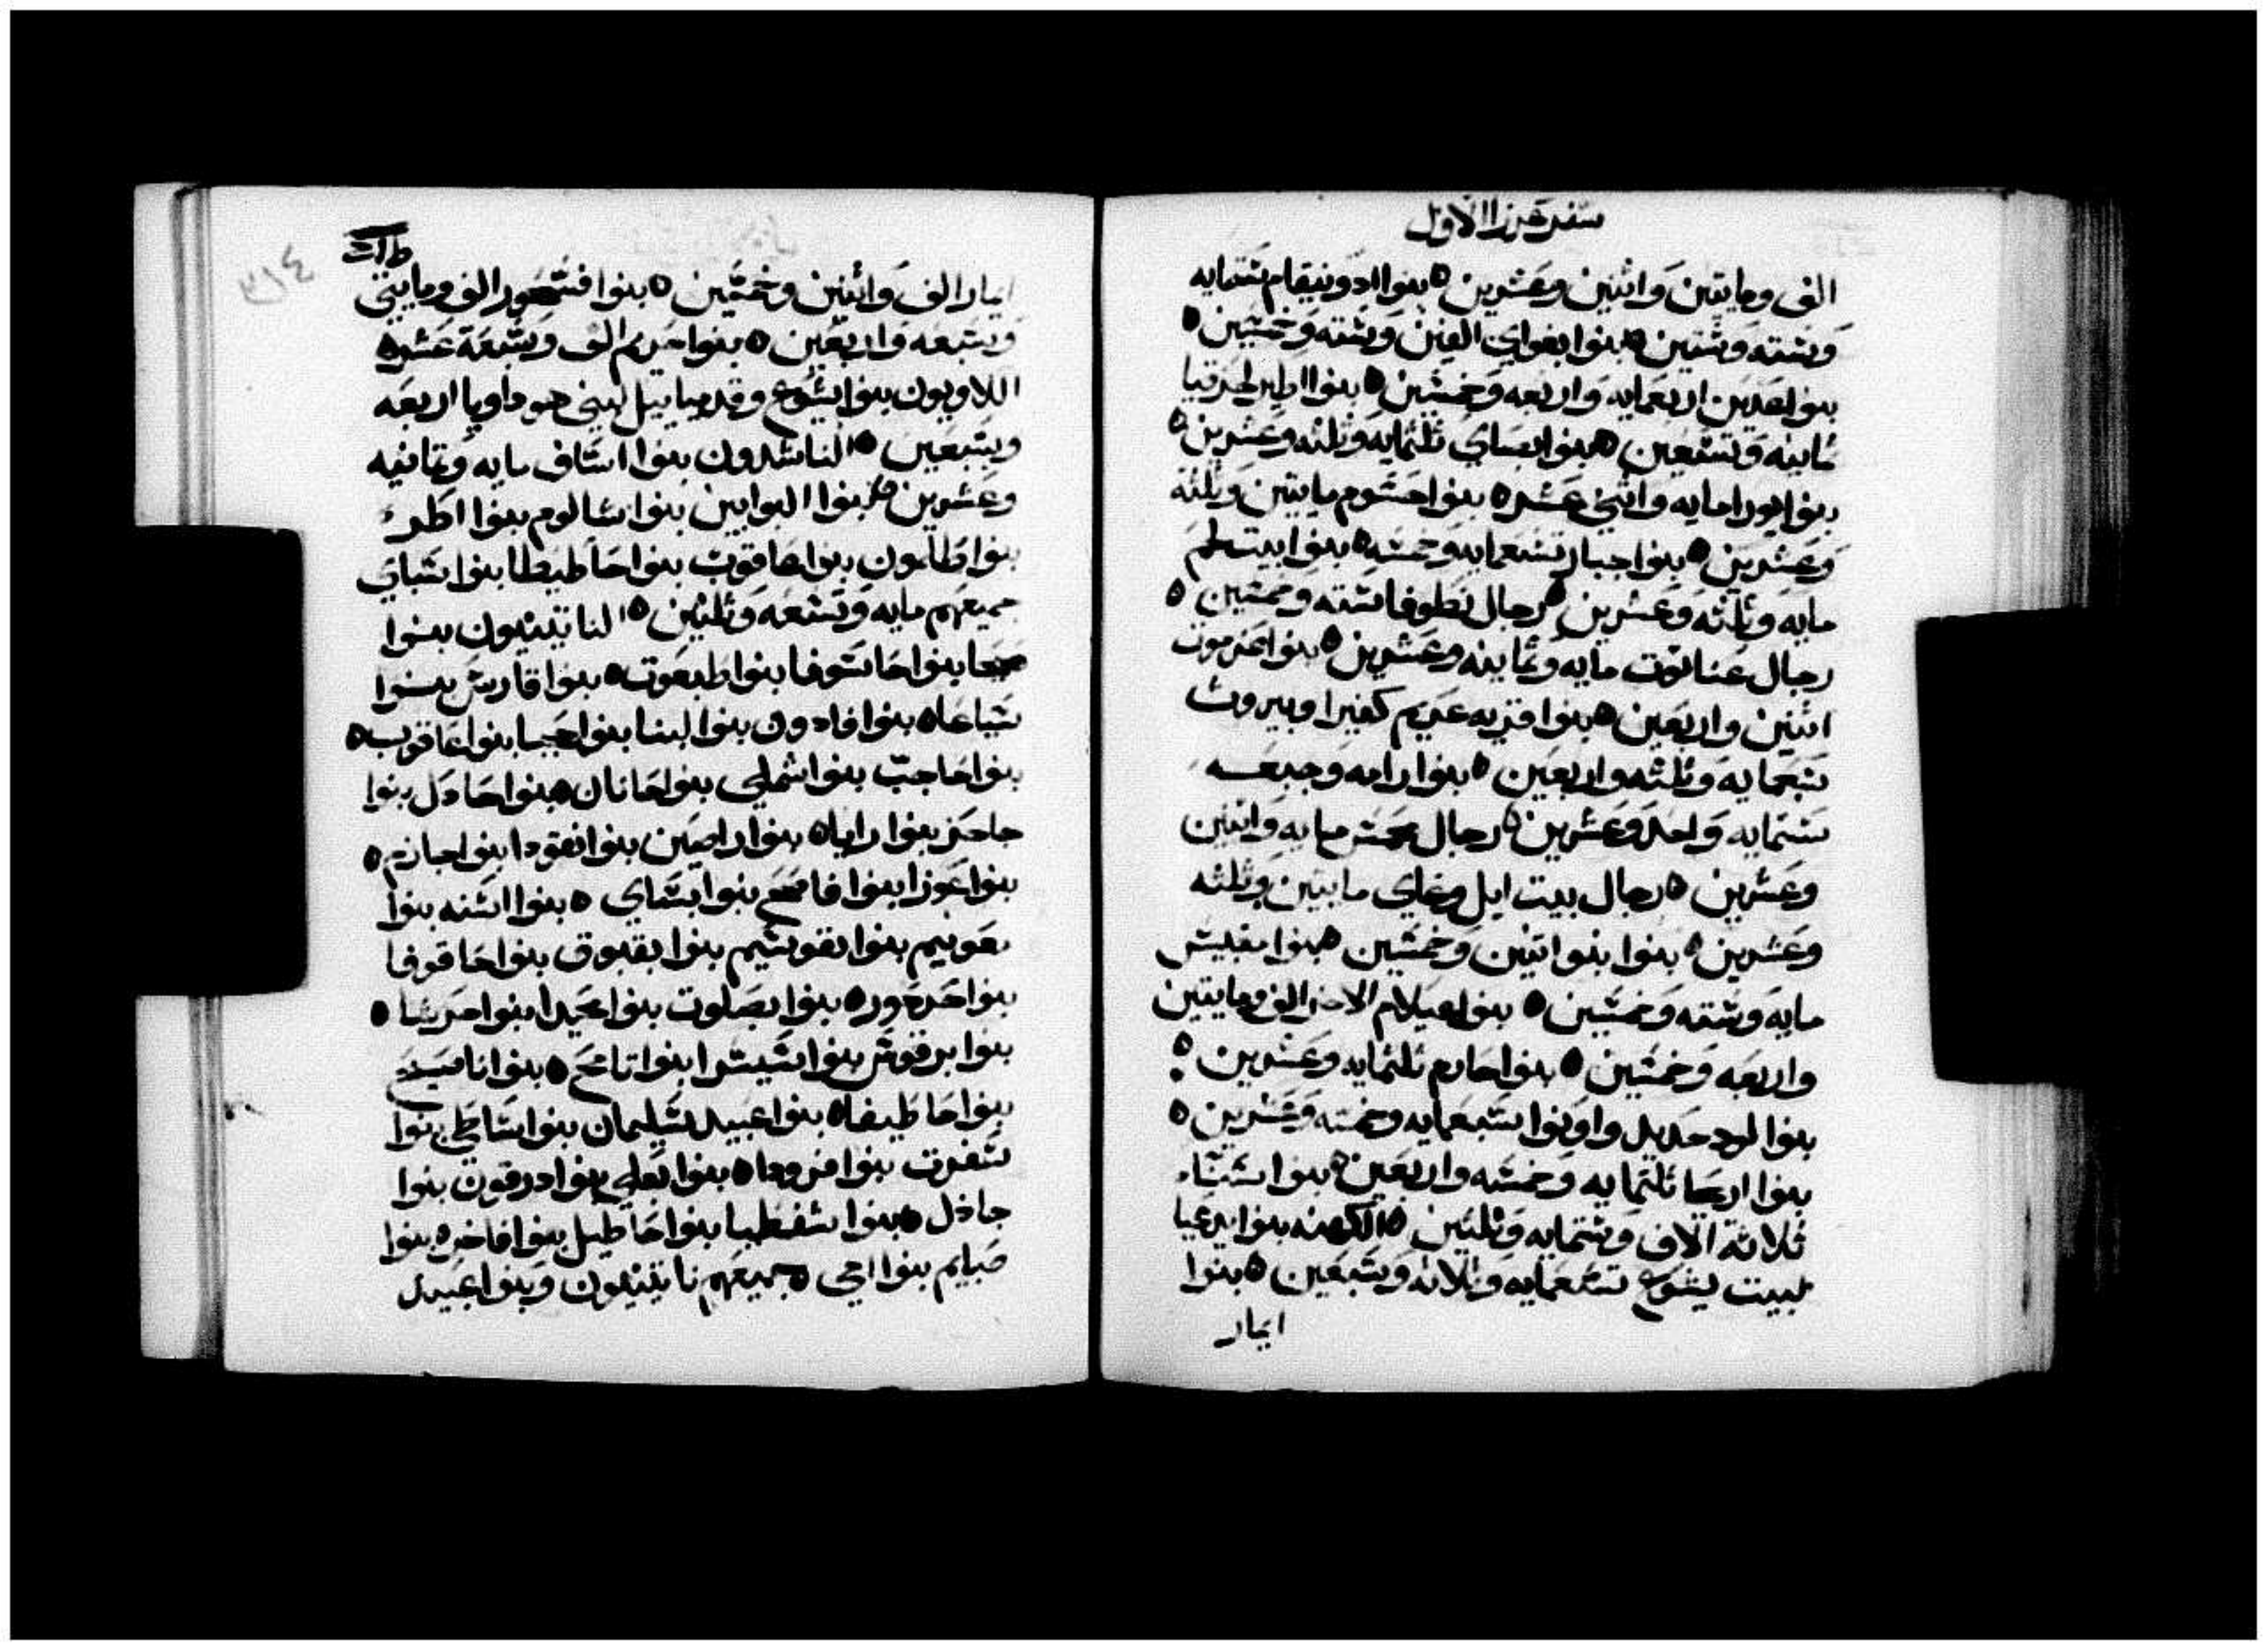 سفر عزرا الاول
الف ومايتين واثنين وعشرين ه بنوا ادونيقام ستمايه
وسته وستين ه بنوا بغواي الفين وسته وخمسين ه
بنوا عدين اربعمايه واربعه وخمسين ه بنوا اطير لحزقيا
ثمانيه وتسعين ه بنوا بصاي ثلثمايه وثلثه وعشرين ه
بنوا يورا مايه واثني عشر ه بنوا حشوم مايتين وثلثه
وعشرين ه بنوا جبار تسعمايه وخمسه ه بنوا بيت لحم
مايه وثلثه وعشرين ه رجال نطوفا سته وخمسين ه
رجال عناتوت مايه وثمانيه وعشرين ه بنوا عزموت
اثنين واربعين ه بنوا قريه عريم كفيرا وبيروت
سبعمايه وثلثه واربعين ه بنوا رامه وجبعه
ستمايه واحد وعشرين ه رجال محمس مايه واثنين
وعشرين ه رجال بيت ايل وعاي مايتين وثلثه
وعشرين ه بنوا نبوا اثنين وخمسين ه بنوا مغبيش
مايه وسته وخمسين ه بنوا عيلام الاخر الف ومايتين
واربعه وخمسين ه بنوا حارم ثلثمايه وعشرين ه
بنوا لود حديد واونوا سبعمايه وخمسه وعشرين ه
بنوا اريحا ثلثمايه وخمسه واربعين ه بنوا سناه
ثلاثة الاف وستمايه وثلثين ه الكهنه بنوا يدعيا
لبيت يشوع تسعمايه وثلاثه وسبعين ه بنوا
ايمار
ايمار الف واثنين وخمسين ه بنوا فشحور الف ومايتي
وسبعه واربعين ه بنوا حريم الف وسبعة عشر ه
اللاويون بنوا يشوع وقدمياييل لبني هوداويا اربعه
وسبعين ه الناشدون بنوا اساف مايه وثمانيه
وعشرين ه بنوا البوابين بنوا شالوم بنوا اطر
بنوا طالمون بنوا عاقوب بنوا حاطيطا بنوا شباي
جميعهم مايه وتسعه وثلثين ه الناتينيون بنوا
صحا بنوا حاسوفا بنوا طبعوت ه بنوا قارس بنوا
سباعاه بنوا فادون بنوا لبنا بنوا حجبا بنوا عاقوب ه
بنوا حاجب بنوا شملي بنوا حانان ه بنوا حادل بنوا
حاحز بنوا راياه بنوا راصين بنوا نقودا بنوا جازم ه
بنوا عوزا بنوا فاسح بنوا بساي ه بنوا اسنه بنوا
معونيم بنوا نفوسيم بنوا بقبوق بنوا حاقوفا
بنوا حرحور ه بنوا بصلوت بنوا محيدا بنوا حرشا ه
بنوا برقوس بنوا سيسرا بنوا تامح ه بنوا ناصيح
بنوا حاطيفاه بنوا عبيد سليمان بنوا ساطي بنوا
سفرت بنوا فروداه بنوا يعلي بنوا درقون بنوا
جادل ه بنوا شفطيا بنوا حاطيل بنوا فاخره بنوا
صبايم بنوا امي ه جميعهم ناتينيون وبنوا عبيد